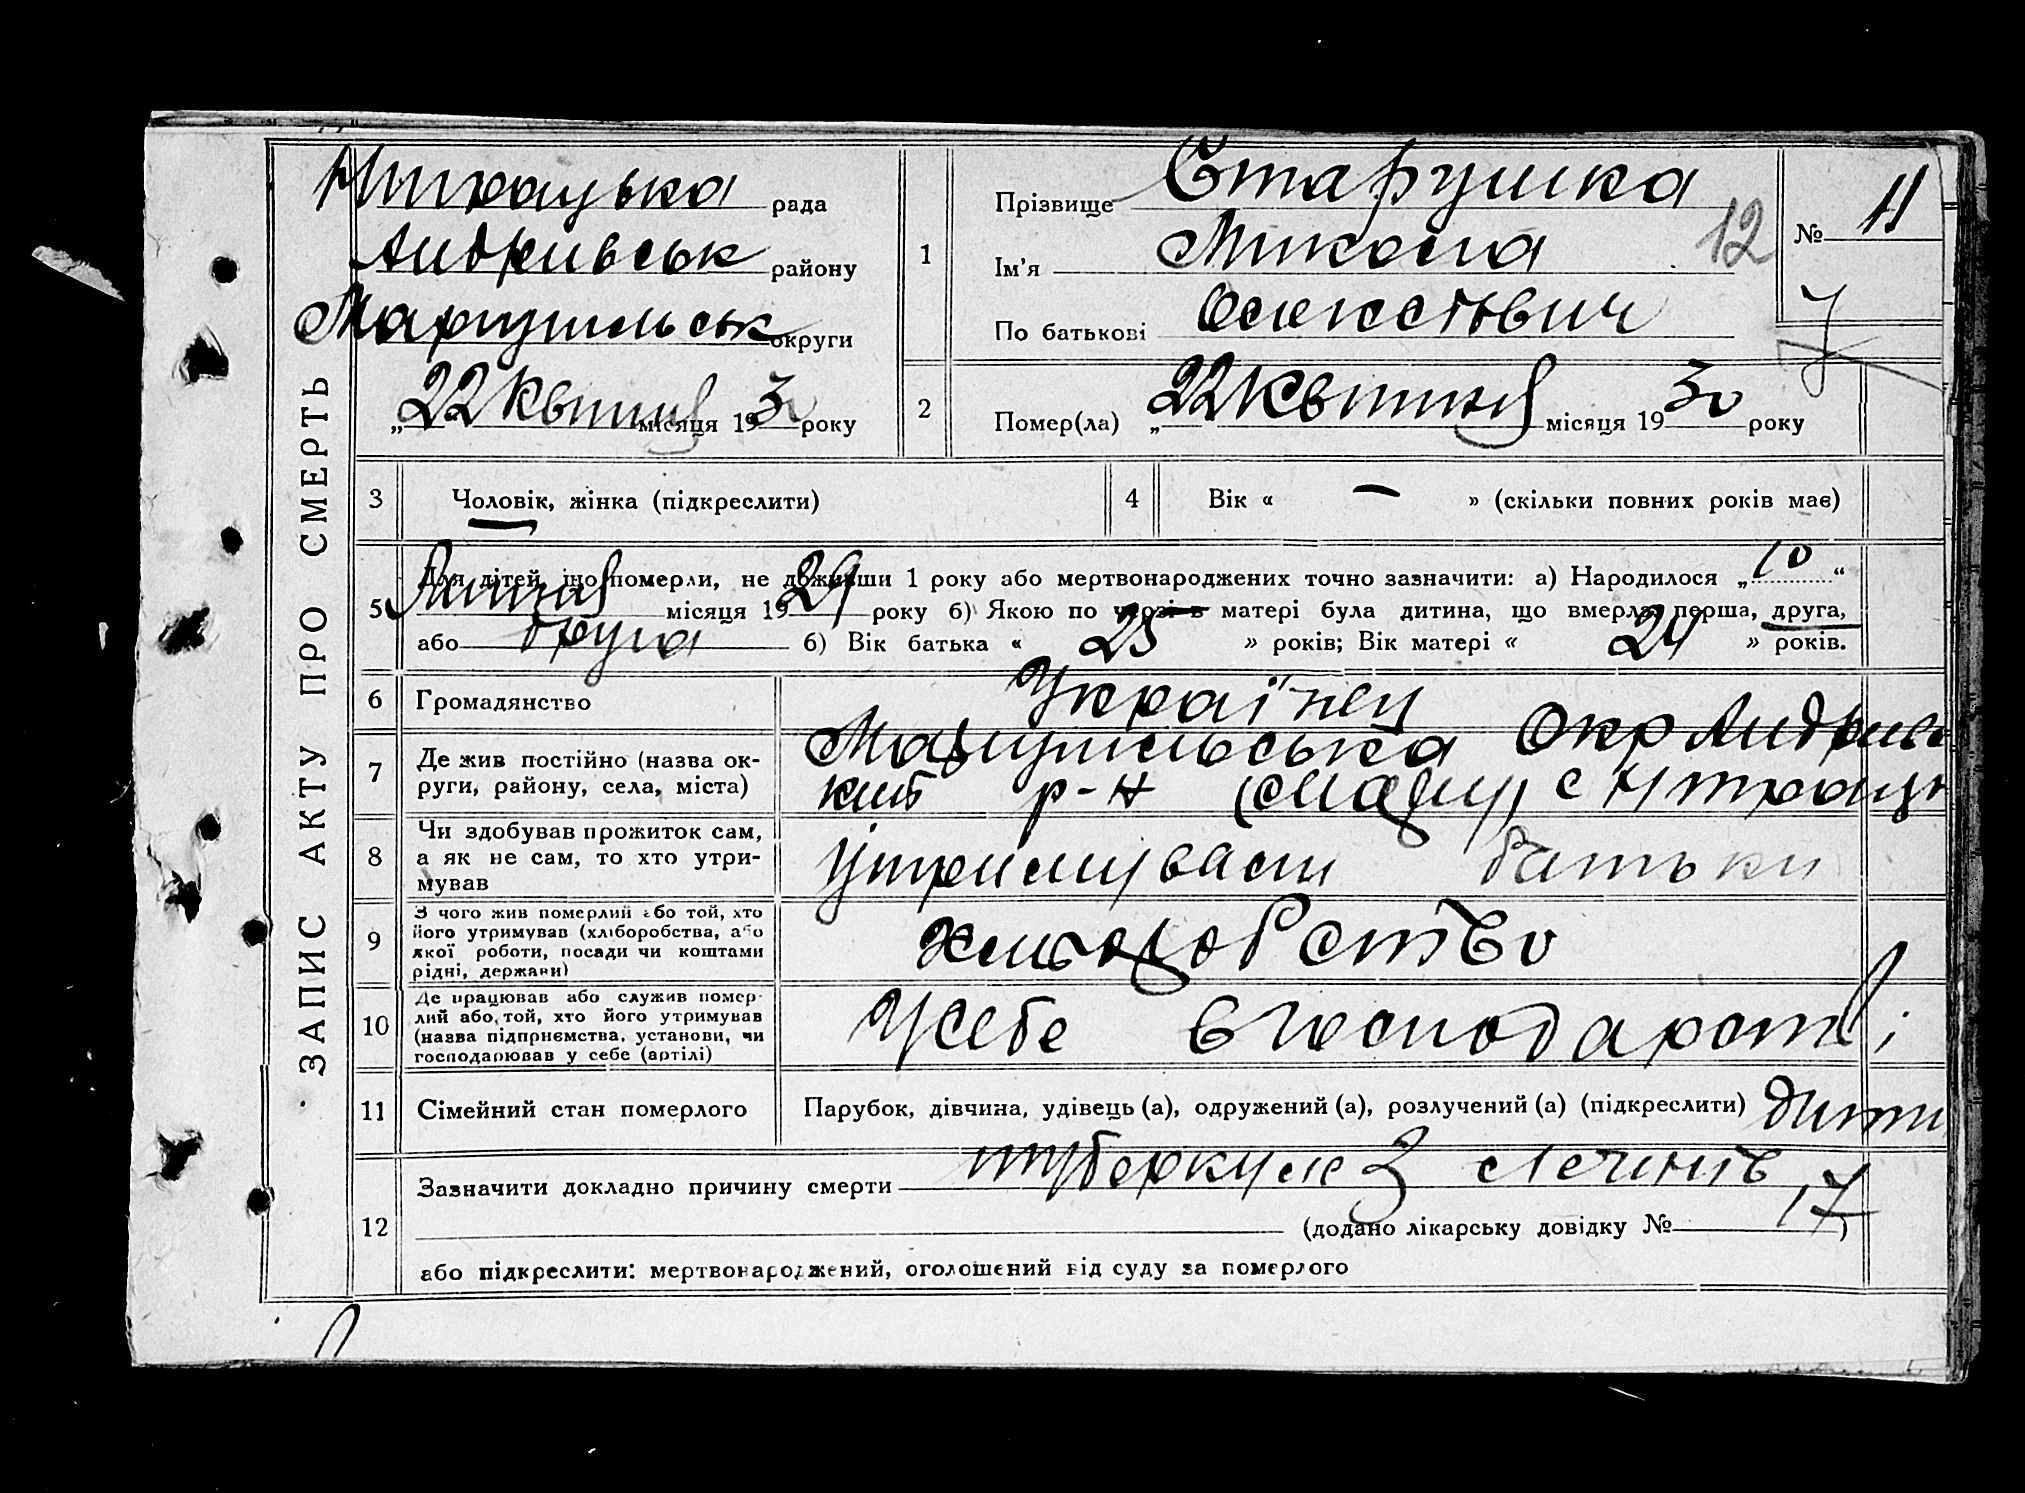 ЗАПИС АКТУ ПРО СМЕРТЬ
рада
Андривськ району
Мариупильськ округи
„22 Квитня місяця 1930 року
1
Прізвище Старушка
Ім'я Микола
По батькові
12
№ 11
7
2
Помер(ла) „22 Квитня місяця 1930 року
3 Чоловік, жінка (підкреслити)
4 Вік « — » (скільки повних років має)
5 Для дітей, що померли, не доживши 1 року або мертвонароджених точно зазначити: а) Народилося „10“
місяця 1929 року б) Якою по черзі в матері була дитина, що вмерла: перша, друга,
або друга б) Вік батька « 25 » років; Вік матері « 24 » років.
6 Громадянство Українец
7 Де жив постійно (назва ок-
руги, району, села, міста)
Мариупильська Окр Андривс
кий р-н с
8 Чи здобував прожиток сам,
а як не сам, то хто утри-
мував
утримували батьки
9 З чого жив померлий або той, хто
його утримував (хліборобства, або
якої роботи, посади чи коштами
рідні, держави)
10 Де працював або служив помер-
лий або, той, хто його утримував
(назва підприємства, установи, чи
господарював у себе (артілі)
У себе в господарстві
11 Сімейний стан померлого Парубок, дівчина, удівець (а), одружений (а), розлучений (а) (підкреслити) дити
12 Зазначити докладно причину смерти туберкулез легнів
(додано лікарську довідку № 17)
або підкреслити: мертвонароджений, оголошений від суду за померлого